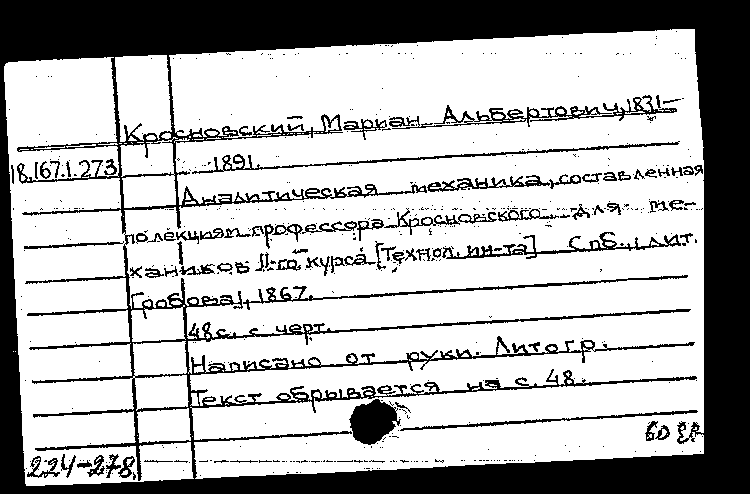 Кросновский, Мариан Альбертович, 1831-
18.167.1.273 1891.
Аналитическая механика, составленная
по лекциям профессора Кросновского для ме-
хаников II-го курса [Технол. ин-та] Спб., лит.
Гробова, 1867.
48 с. с черт.
Написано от руки. Литогр.
Текст обрывается на с. 48.
224-278.